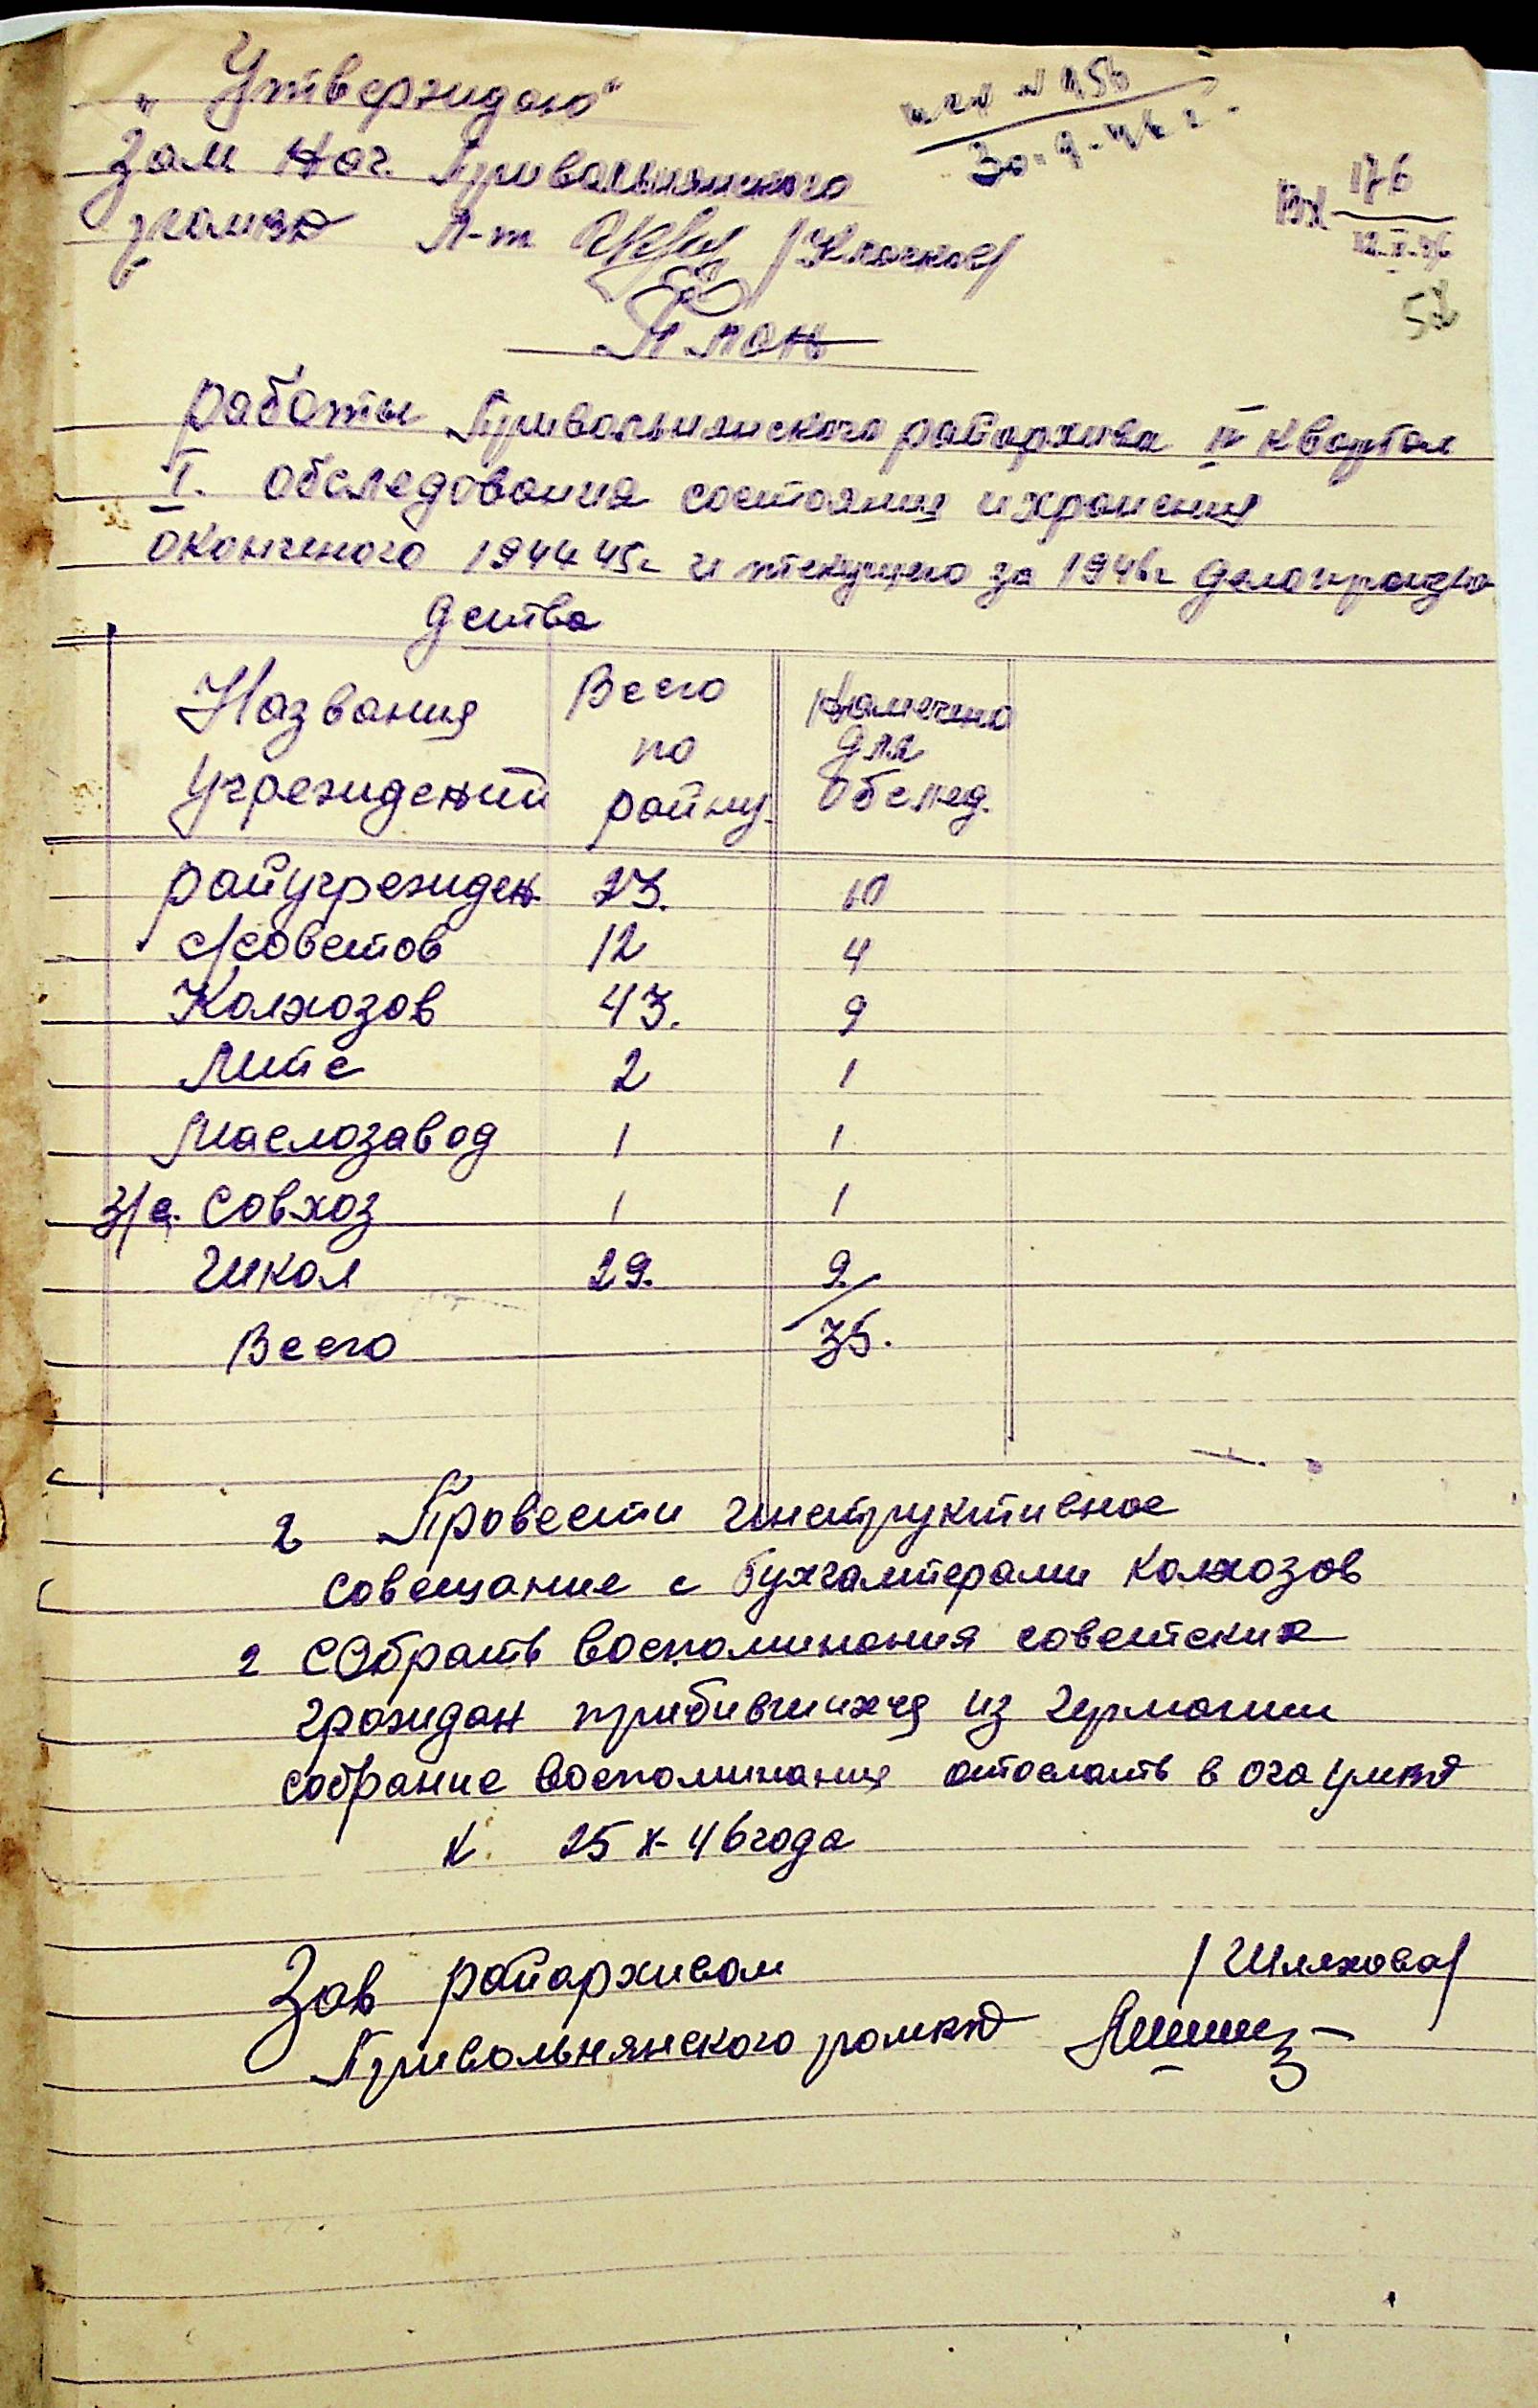 „Утвержидаю"
исх №956
30-9-46 г.
Зам Нач. Привольнянского
Вх 176
12.X.46
ромвд Л-т /Клочков/
52
План
работы Привольнянского райархива IV квартал
I. Обследования состояния и хранения
оконченого 1944 45г и текущего за 1946г делопроизво
дства
Названия учрежидений
Всего по району.
Намечено для Обслед.
райучрежиден. 23. 10
с/советов 12 4
Колхозов 43. 9
Мтс 2 1
Маслозавод 1 1
з/с. Совхоз 1 1
Школ 29. 9
Всего 35.
2 Провести Инструктивное
совещание с бухгалтерами Колхозов
2 Собрать Воспоминания советских
гражидан прибившихся из германии
собрание Воспоминания отослать в ога умвд
к. 25 X-46года
Зав райархивом /Шляхова/
Привольнянского ромвд